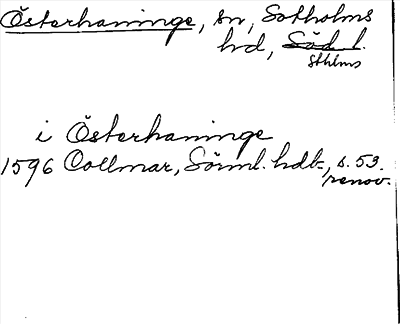 Österhaninge, sn, Sotholms
hd, Söd l.
Sthlms
i Österhaninge
1596 Collmar, Sörml. hdl., s. 53.
renov.